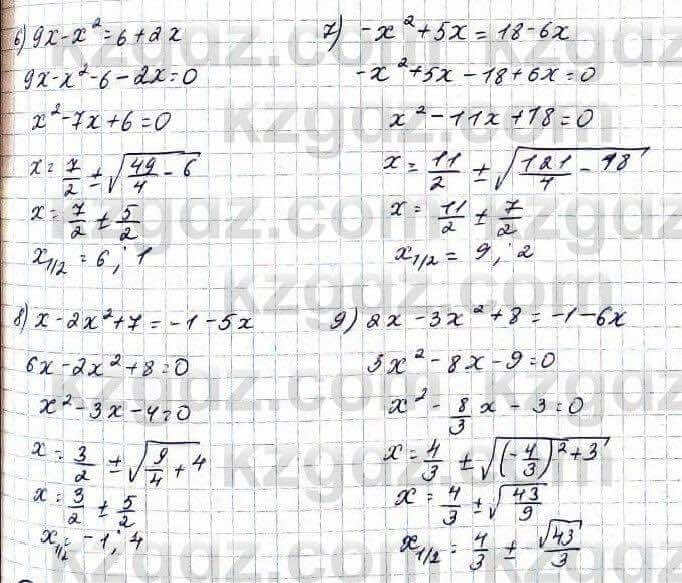 6) 9x-x²=6+2x
9x-x²-6-2x=0
x²-7x+6=0
x=7/2±√(49/4-6)
x=7/2±5/2
x1/2=6;1
7) -x²+5x=18-6x
-x²+5x-18+6x=0
x²-11x+18=0
x=11/2±√(121/4-18)
x=11/2±7/2
x1/2=9;2
8) x-2x²+7=-1-5x
6x-2x²+8=0
x²-3x-4=0
x=3/2±√(9/4+4)
x=3/2±5/2
x1/2=-1;4
9) 2x-3x²+8=-1-6x
3x²-8x-9=0
x²-8/3x-3=0
x=4/3±√((-4/3)²+3)
x=4/3±√(43/9)
x1/2=4/3±√43/3
kzgdz.com